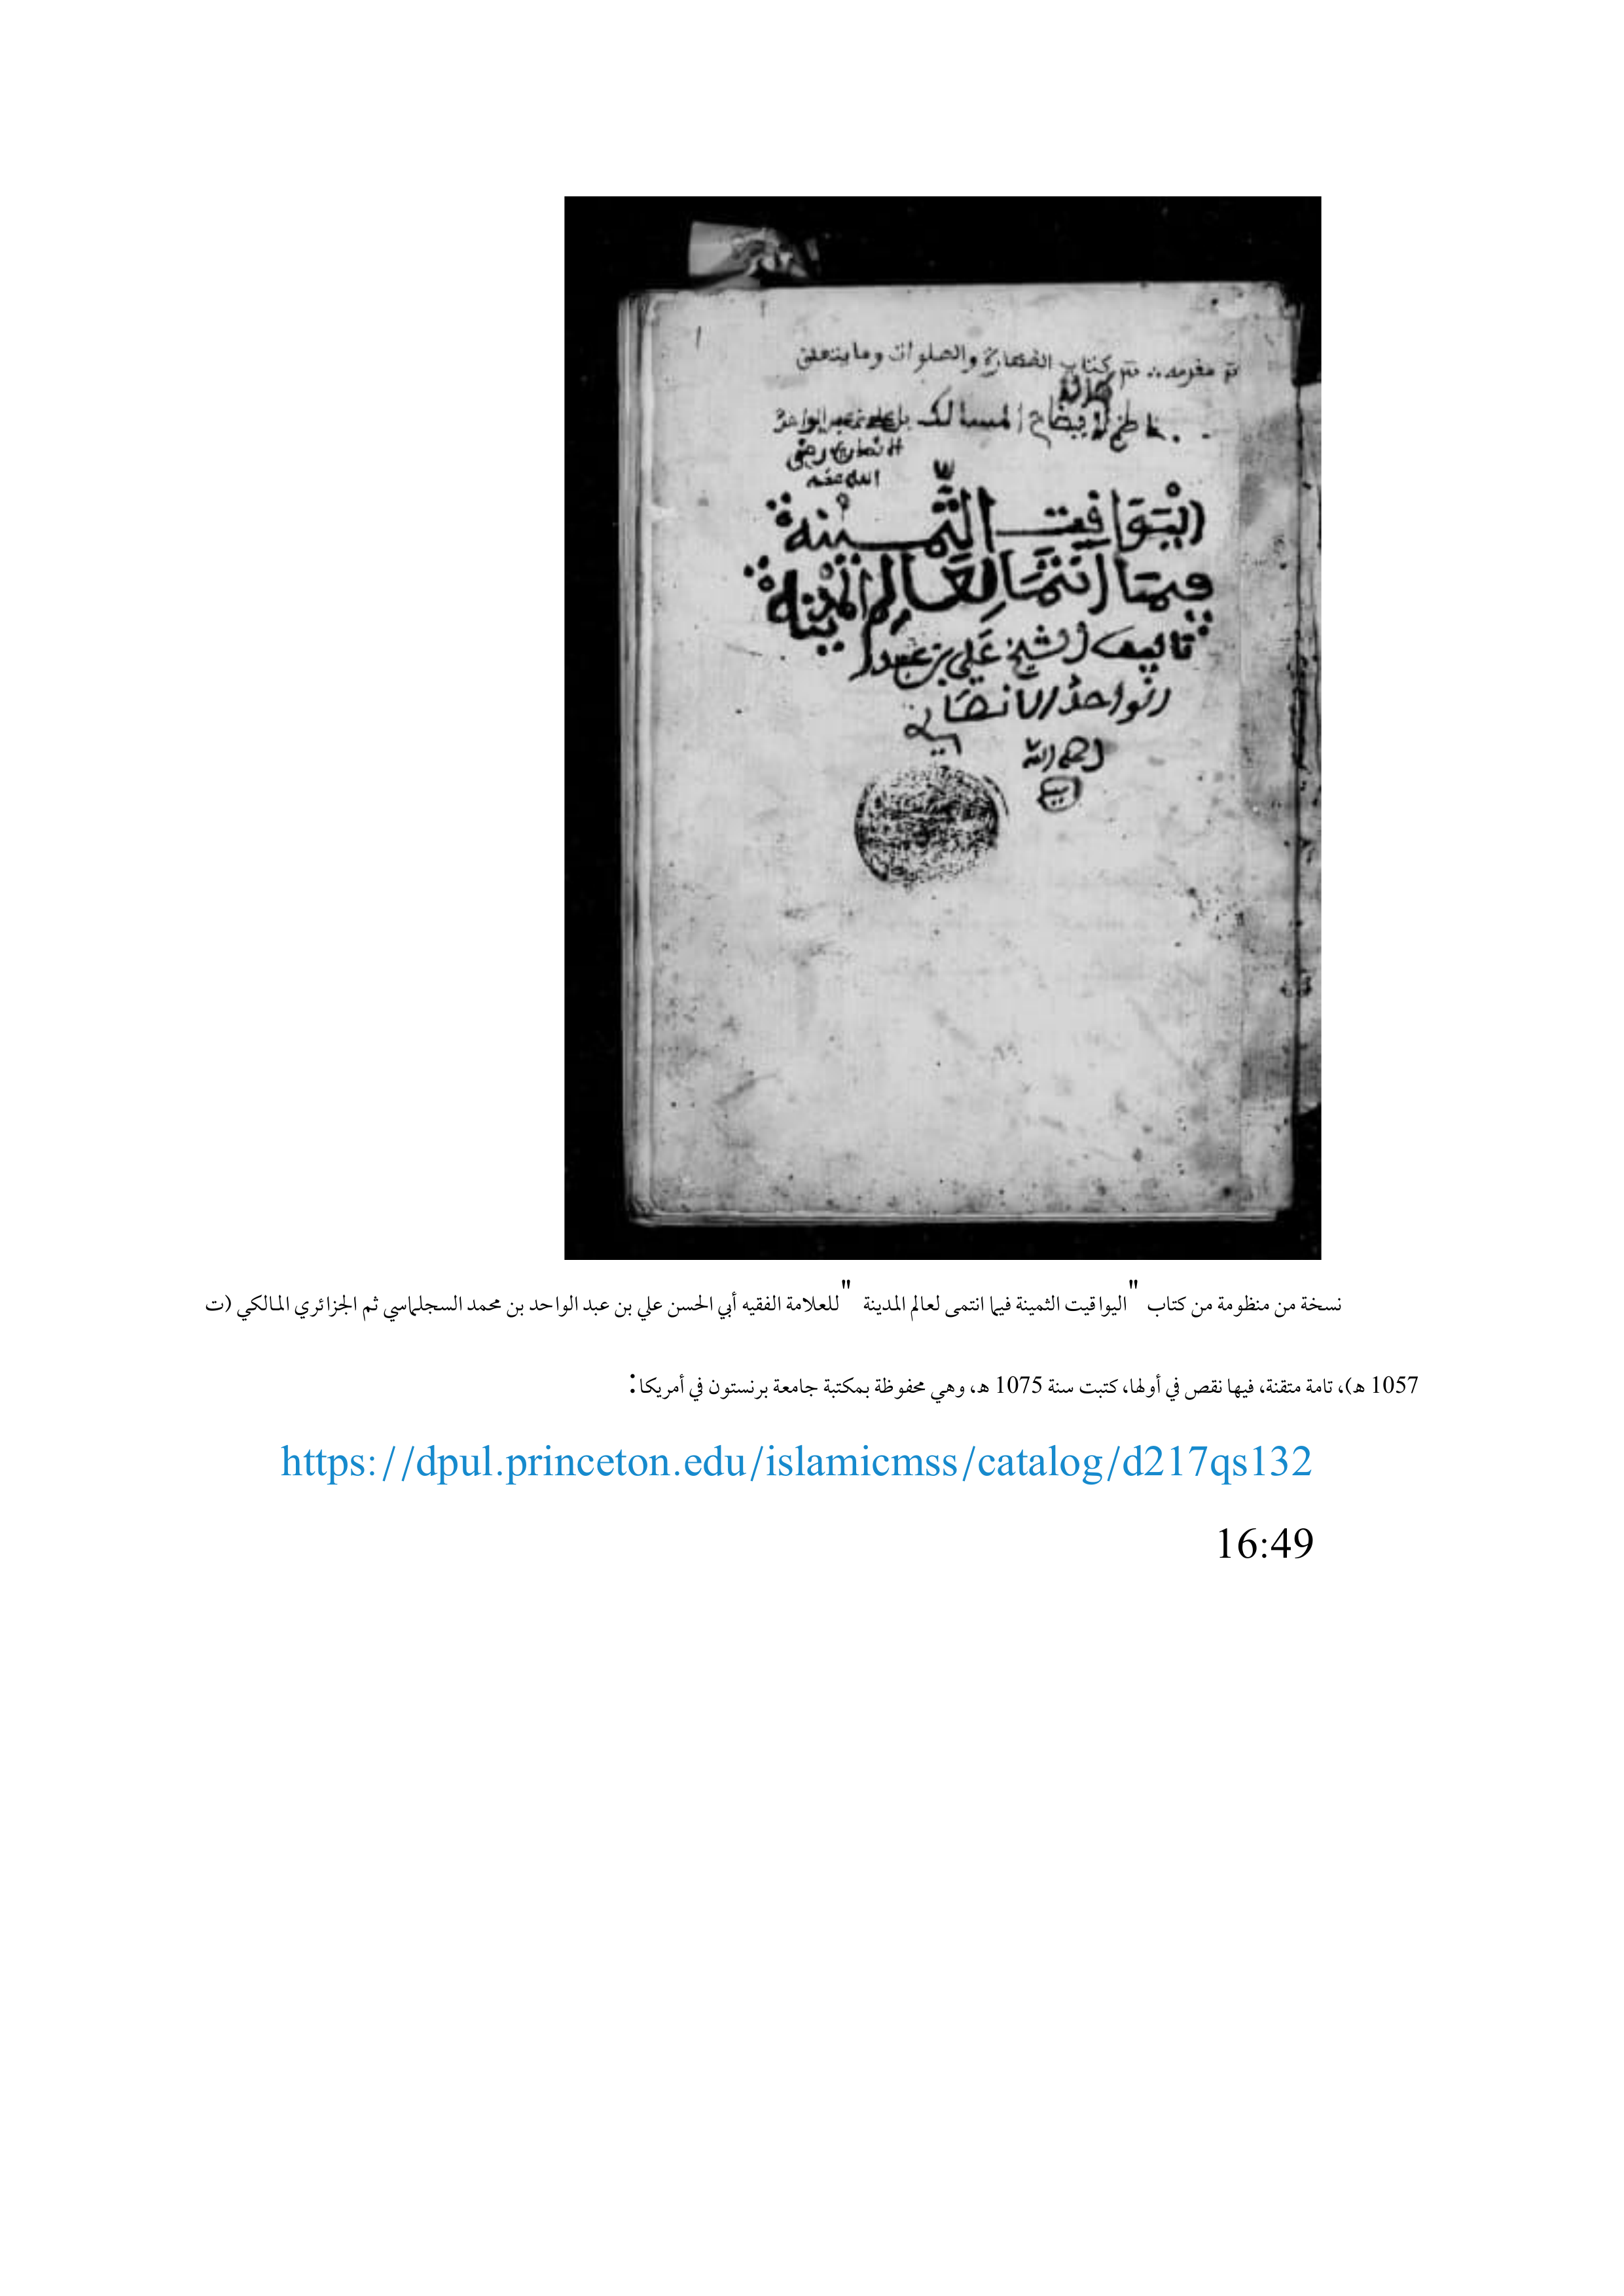 كتاب الطهارة والصلوات وما يتعلق
المسالك
الله عنه
اليواقيت الثمينة
فيما انتما لعالم المدينة
تاليف الشيخ علي بن عبد
الواحد الانصاري
نسخة من منظومة من كتاب "اليواقيت الثمينة فيما انتمى لعالم المدينة " للعلامة الفقيه أبي الحسن علي بن عبد الواحد بن محمد السجلماسي ثم الجزائري المالكي (ت
1057 هـ)، تامة متقنة، فيها نقص في أولها، كتبت سنة 1075 هـ، وهي محفوظة بمكتبة جامعة برنستون في أمريكا:
https://dpul.princeton.edu/islamicmss/catalog/d217qs132
16:49